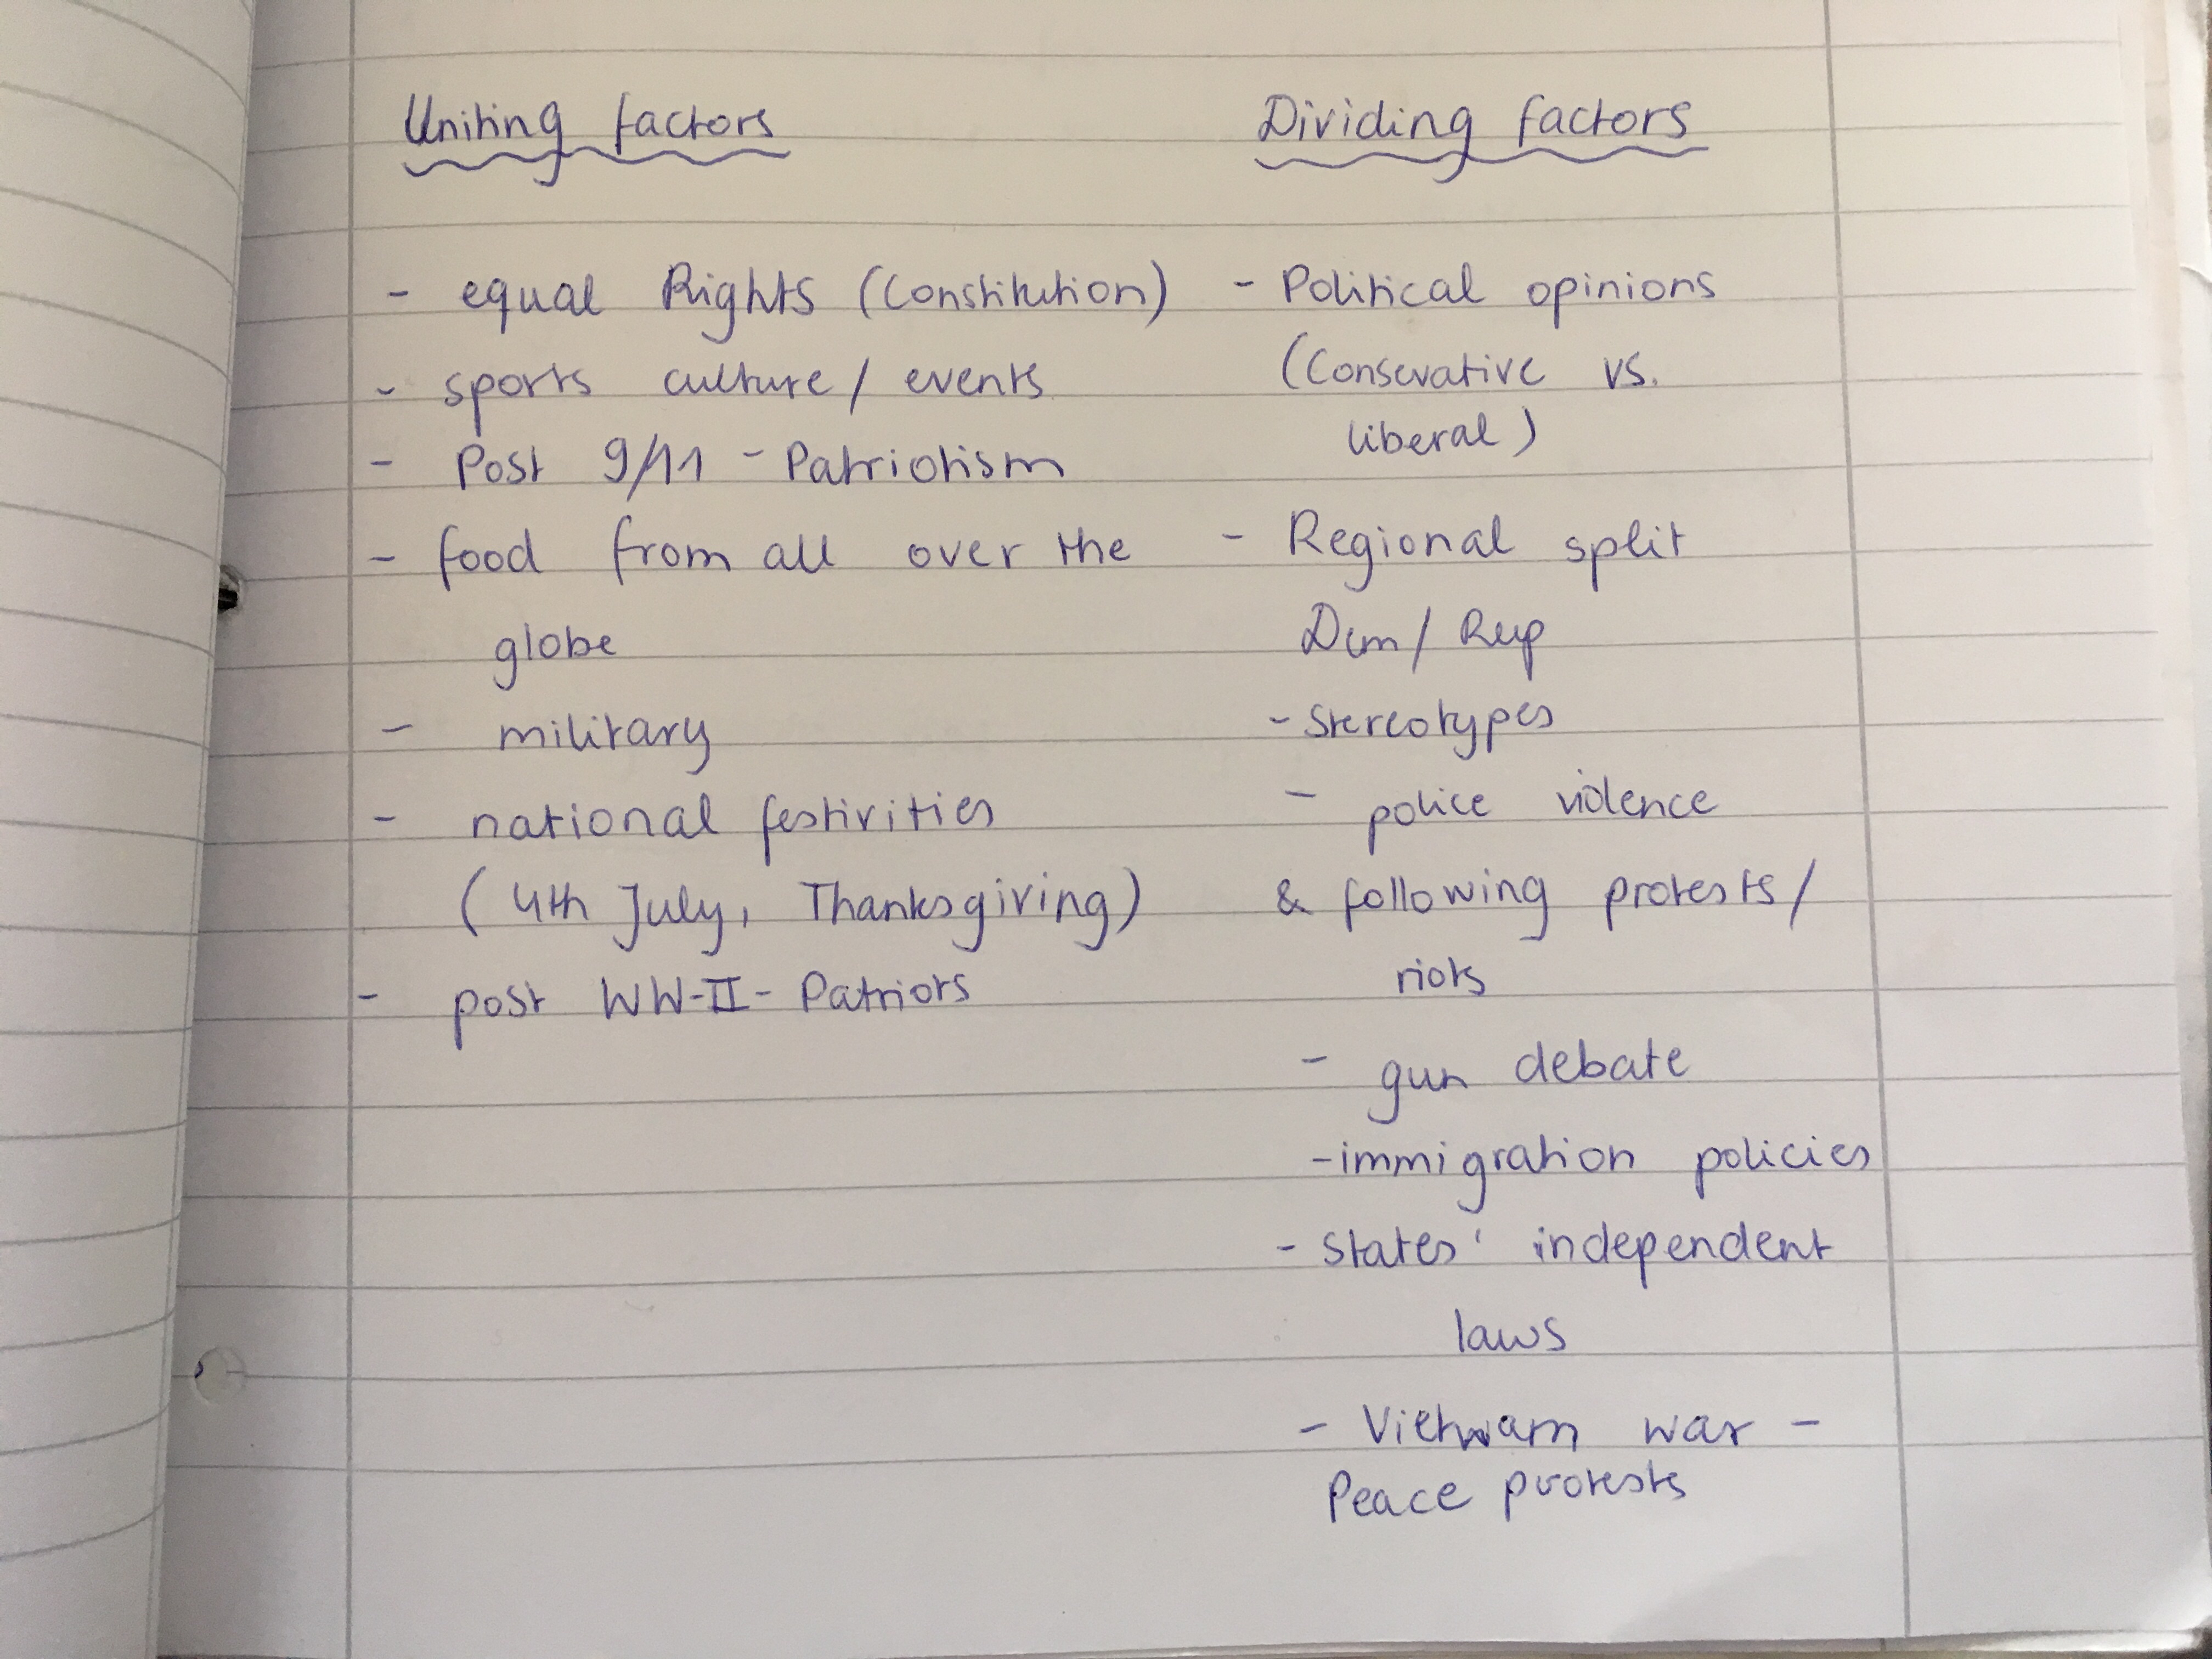 Uniting factors
- equal Rights (Constitution)
- sports culture / events
- Post 9/11 - Patriotism
- food from all over the
globe
- military
- national festivities
(4th July, Thanksgiving)
- post WW-II - Patriots
Dividing factors
- Political opinions
(Consevative vs.
liberal)
- Regional split
Dem / Rep
- Stereotypes
- police violence
& following protests /
riots
- gun debate
- immigration policies
- states' independent
laws
- Vietnam war -
Peace protests